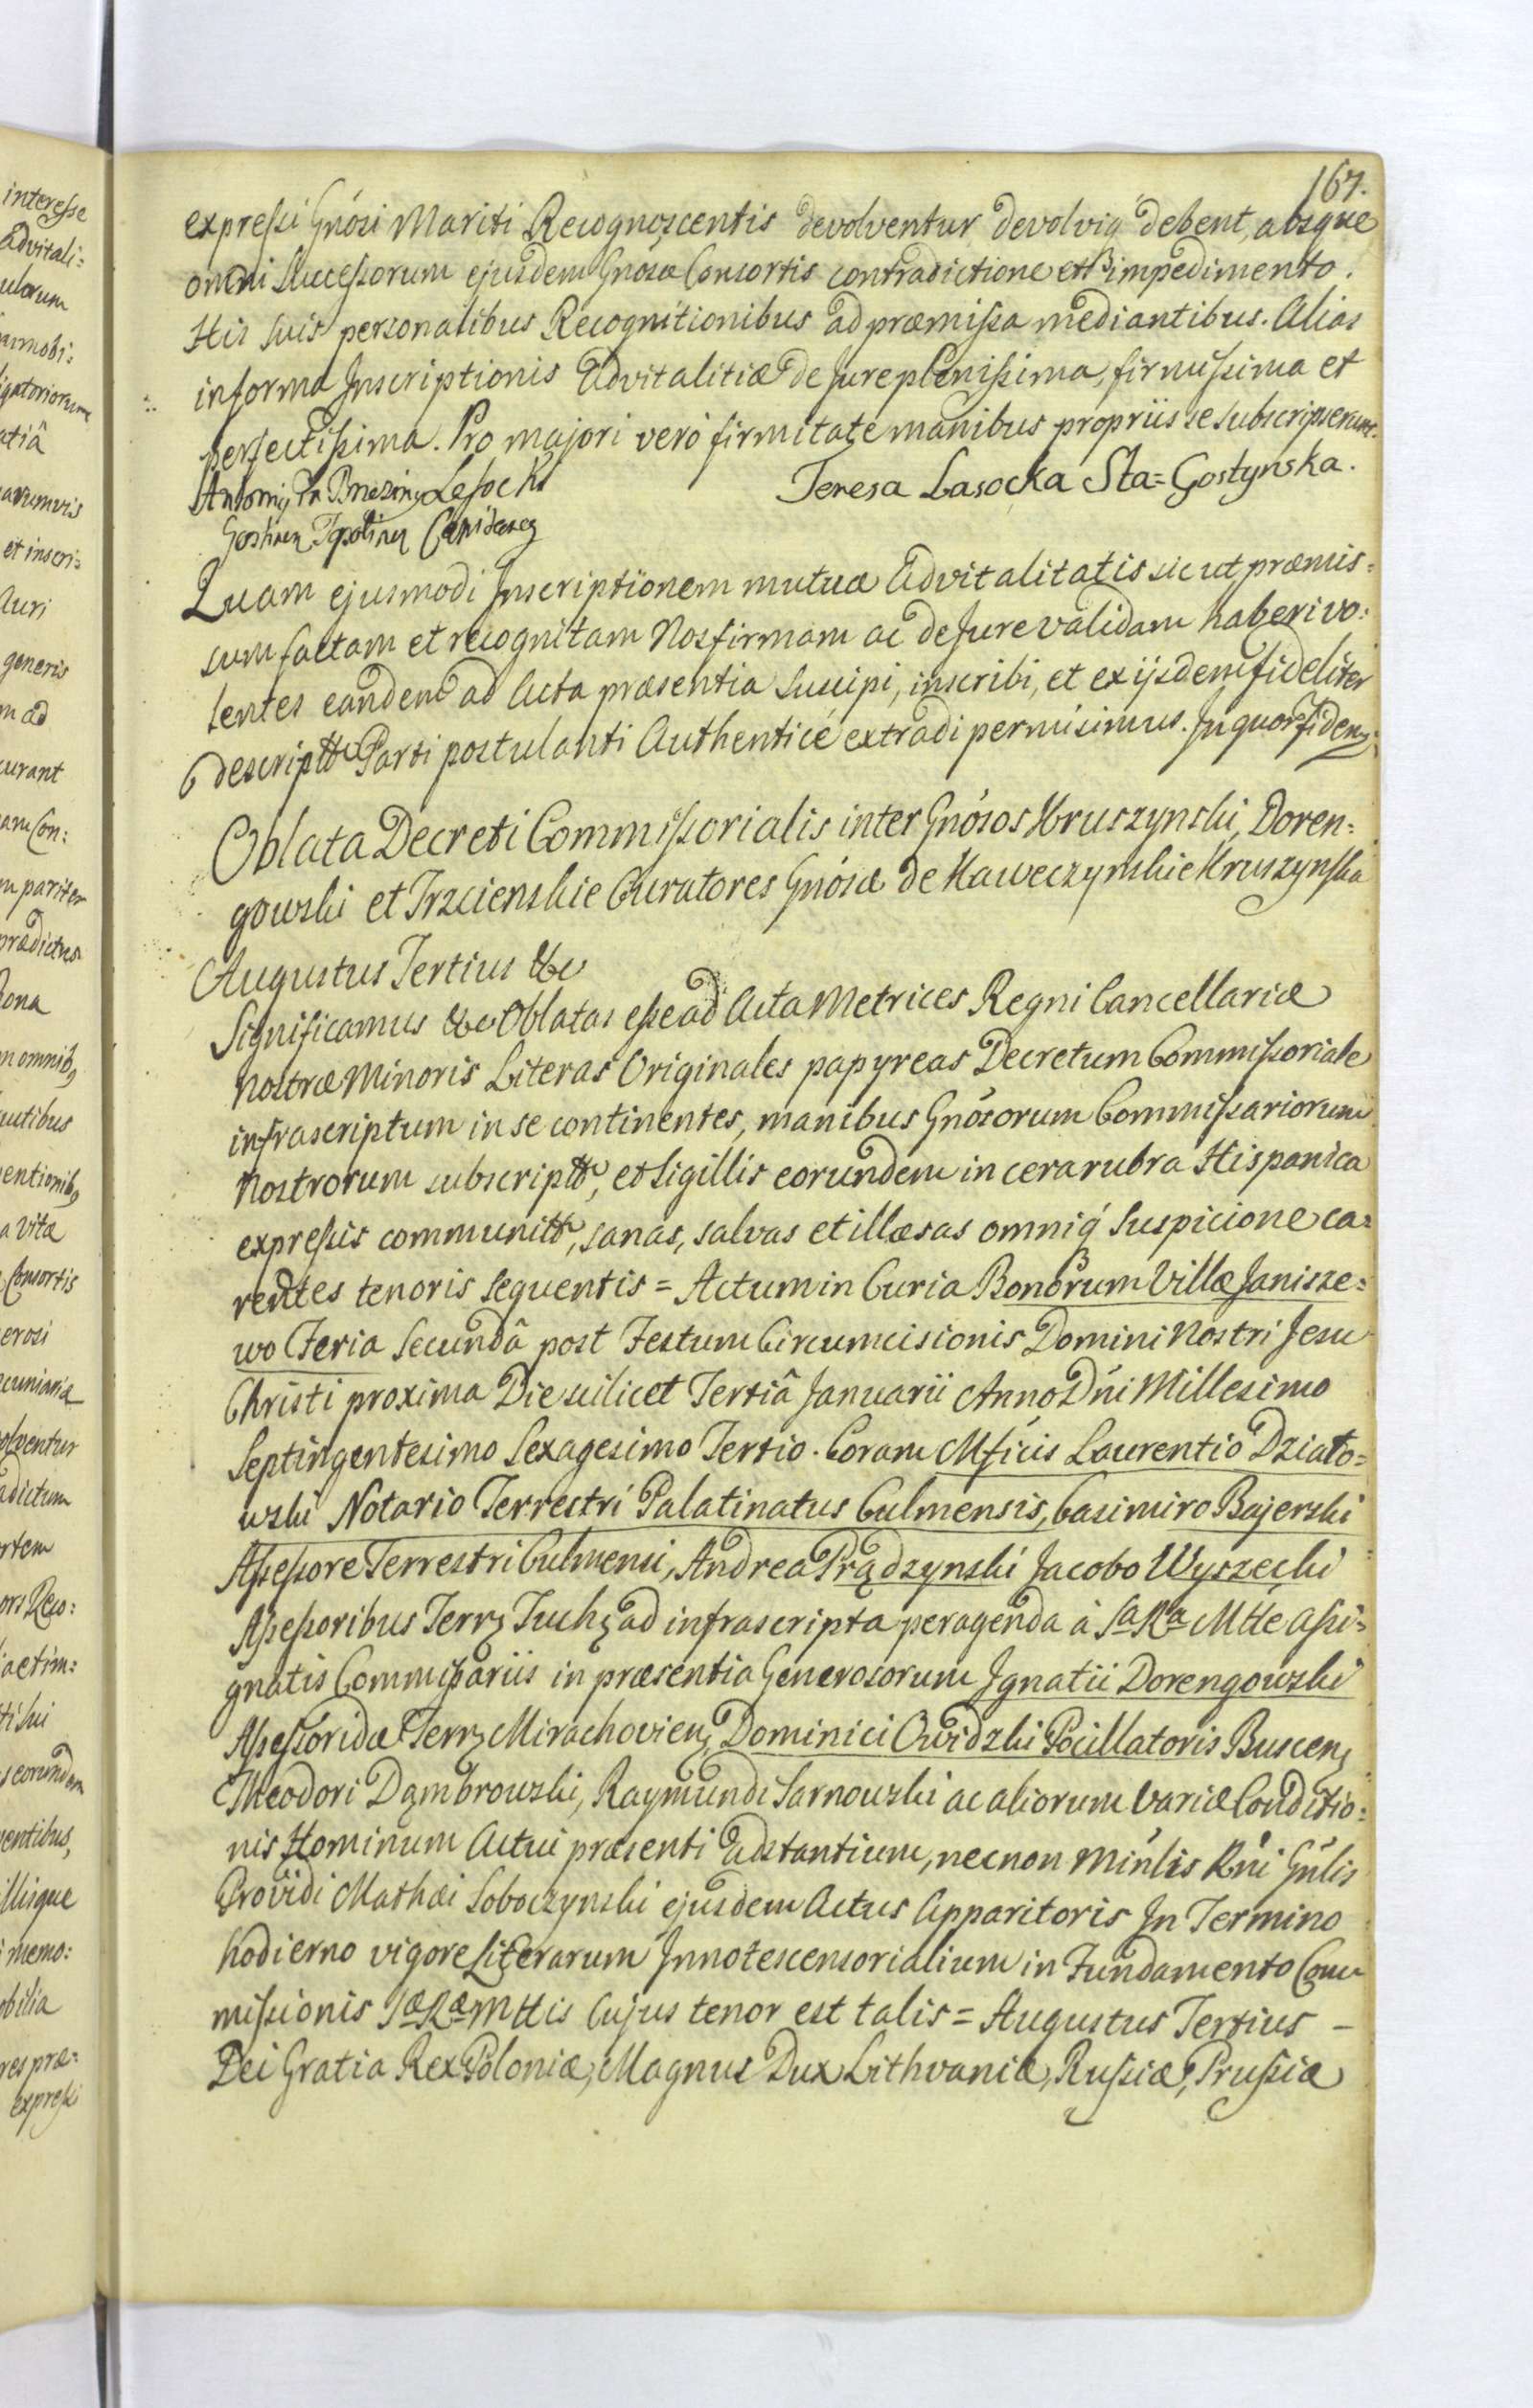 167.
expressi Gnósi Mariti Recognoscentis devolventur devolviq́ debent, absque
omni Successorum ejusdem Gnosæ Consortis contradictione et impedimento.
His suis personalibus Recognitionibus ad præmissa mediantibus. Alias
in forma Inscriptionis Advitalitiæ de Jure plenissima, firmissima et
perfectissima. Pro majori veró firmitate manibus propriis se subscripserunt.
Antoni Lasocki
Teresa Lasocka Sta=Gostynska.
Quam ejusmodi Inscriptionem mutuæ Advitalitatis sicut præmis=
sum factam et recognitam Nos firmam ac de Jure validam haberi vo=
lentes eandem ad Acta præsentia suscipi, inscribi, et ex ijsdem fideliter
descriptā Parti postulanti Authenticé extradi permisimus. In quor fidem
Oblata Decreti Commissorialis inter Gnósos Kruszynski, Doren=
gowski et Trzcienskie Curatores Gnósæ de Kaweczynskie Kruszynska
Augustus Tertius &c
Significamus &c Oblatas esse ad Acta Metrices Regni Cancellariæ
Nostræ Minoris Literas Originales papyreas Decretum Commissoriale
infrascriptum in se continentes, manibus Gnósorum Commissariorum
Nostrorum subscriptas, et Sigillis eorundem in cera rubra Hispanica
expressis communitas, sanas, salvas et illæsas omniq́ Suspicione ca=
rentes tenoris sequentis = Actum in Curia Bonorum Villæ Janisze=
wo Feria Secundâ post Festum Circumcisionis Domini Nostri Jesu
Christi proxima Die scilicet Tertiâ Januarii Anno Dńi Millesimo
Septingentesimo Sexagesimo Tertio. Coram Mficis Laurentio Działo=
wski Notario Terrestri Palatinatus Culmensis, Casimiro Bajerski
Assessore Terrestri Culmensi, Andrea Prądzynski Jacobo Wyszecki
Assessoribus Terrz Tuchz ad infrascripta peragenda à Sa Ra Mtte assi=
gnatis Commissariis in præsentia Generosorum Ignatii Dorengowski
Assessoridæ Terrz Mirachovienz, Dominici Owidzki Pocillatoris Buscenz
Theodori Dąmbrowski, Raymundi Sarnowski ac aliorum variæ Conditio=
nis Hominum Actui præsenti adstantium, necnon Minlis Rni Gńlis
Providi Mathæi Soboczynski ejusdem Actus Apparitoris In Termino
hodierno vigore Literarum Innotescensorialium in Fundamento Com
missionis Sæ Ræ Mttis Cujus tenor est talis = Augustus Tertius –
Dei Gratia Rex Poloniæ, Magnus Dux Lithvaniæ, Russiæ, Prussiæ